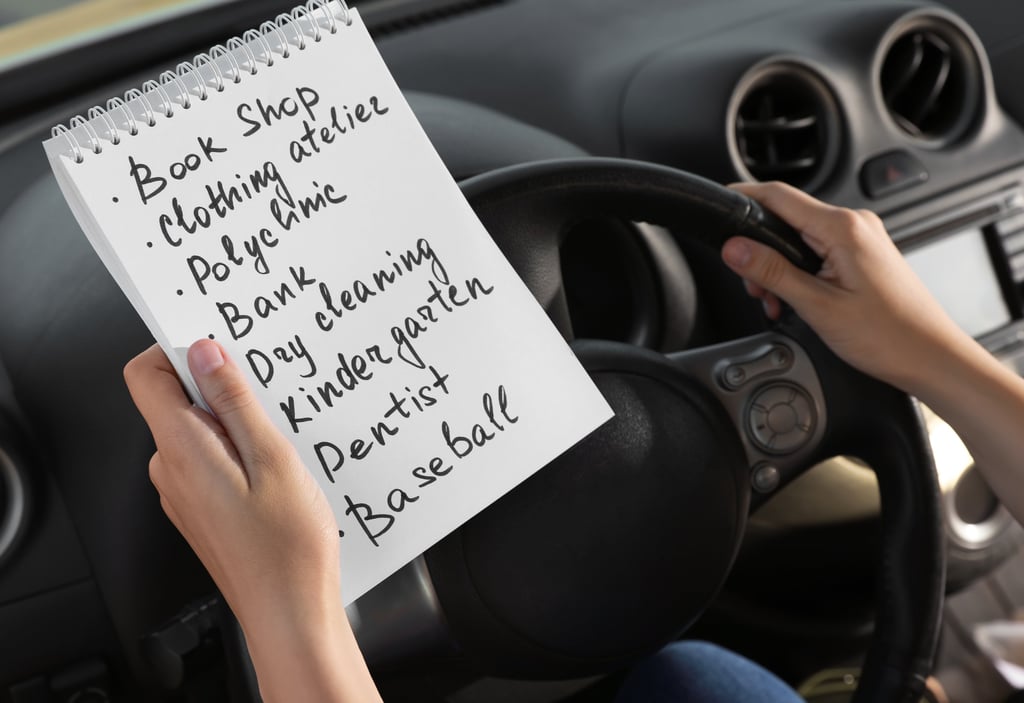 · Book Shop
· Clothing atelier
· Polyclinic
· Bank
Dry cleaning
Kindergarten
Dentist
· Baseball